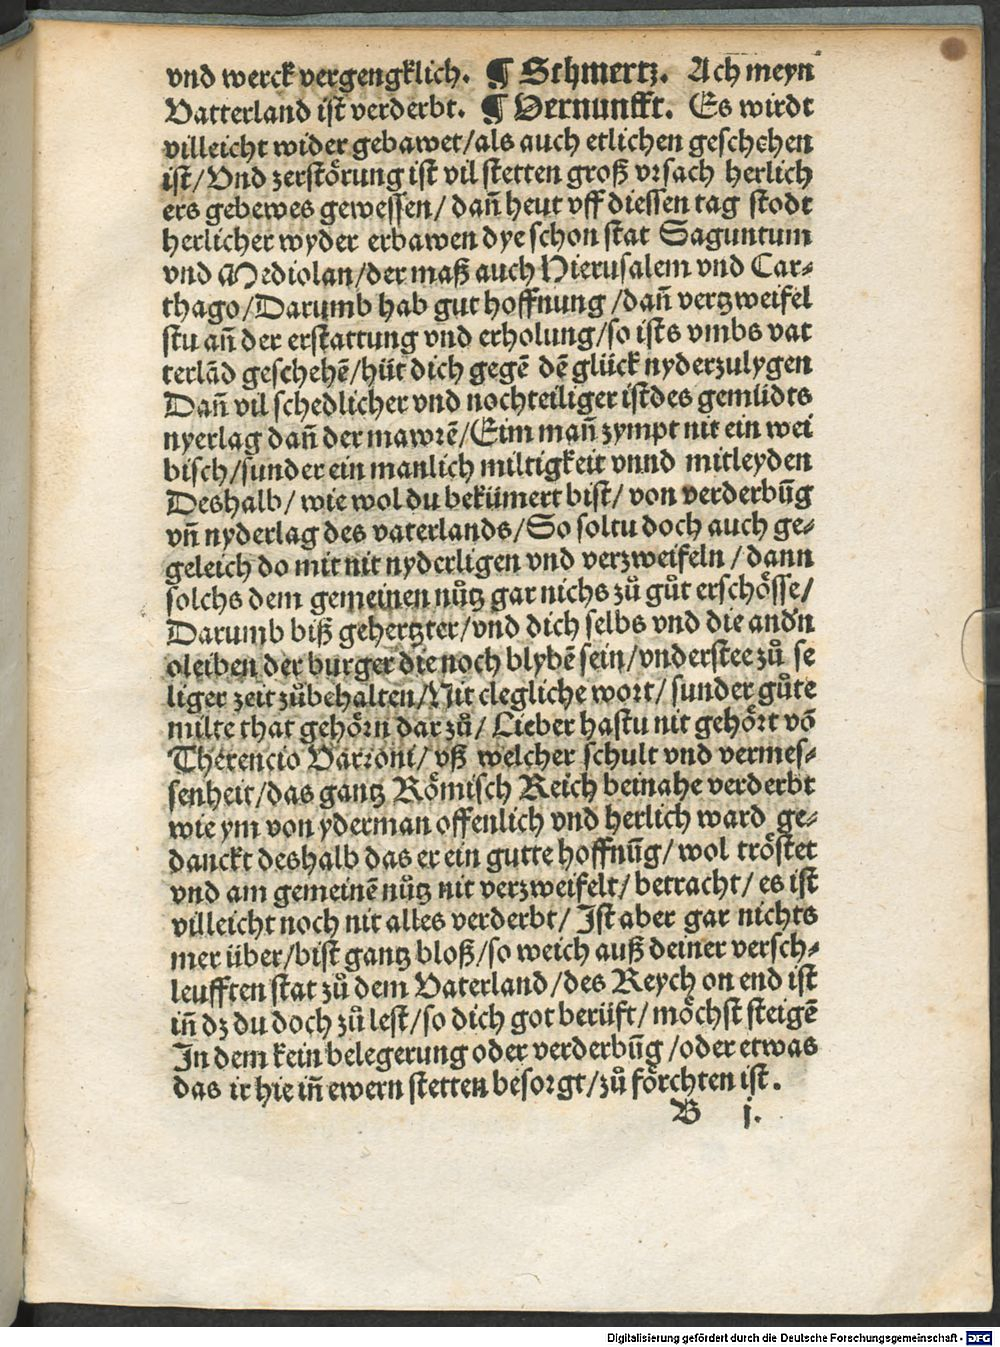 vnd werck vergengklich. ¶ Schmertz. Ach meyn
Vatterland ist verderbt. ¶ Vernunfft. Es wirdt
villeicht wider gebawet/als auch etlichen geschehen
ist/Vnd zerstörung ist vil stetten groß vrsach herlich
ers gebewes gewessen/ dañ heut vff diessen tag stodt
herlicher wyder erbawen dye schon stat Saguntum
vnd Mediolan/der maß auch Hierusalem vnd Car⸗
thago/Darumb hab gut hoffnung /dañ vertzweifel
stu añ der erstattung vnd erholung/so ists vmbs vat
terlād geschehē/hüt dich gegē dē glück nyderzulygen
Dañ vil schedlicher vnd nochteiliger istdes gemlidts
nyerlag dañ der mawrē/Eim mañ zympt nit ein wei
bisch/sunder ein manlich miltigkeit vnnd mitleyden
Deshalb/ wie wol du bekümert bist/ von verderbūg
vñ nyderlag des vaterlands/So soltu doch auch ge⸗
geleich do mit nit nyderligen vnd verzweifeln /dann
solchs dem gemeinen nůtz gar nichs zů gůt erschösse/
Darumb biß gehertzter/vnd dich selbs vnd die andʼn
oleiben der burger die noch blybē sein/vnderstee zů se
liger zeit zůbehalten/Nit clegliche wort/ sunder gůte
milte that gehörn dar zů/ Lieber hastu nit gehört vō
Therencio Varroni/ vß welcher schult vnd vermes⸗
senheit/das gantz Römisch Reich beinahe verderbt
wie ym von yderman offenlich vnd herlich ward ge⸗
danckt deshalb das er ein gutte hoffnūg/wol tröstet
vnd am gemeinē nůtz nit verzweifelt/betracht/ es ist
villeicht noch nit alles verderbt/ Ist aber gar nichts
mer über/bist gantz bloß/so weich auß deiner versch⸗
leufften stat zů dem Vaterland/des Reych on end ist
iñ dz du doch zů lest/so dich got berüft/möchst steigē
In dem kein belegerung oder verderbūg /oder etwas
das ir hie iñ ewern stetten besorgt/zů förchten ist.
B j.
Digitalisierung gefördert durch die Deutsche Forschungsgemeinschaft - DFG